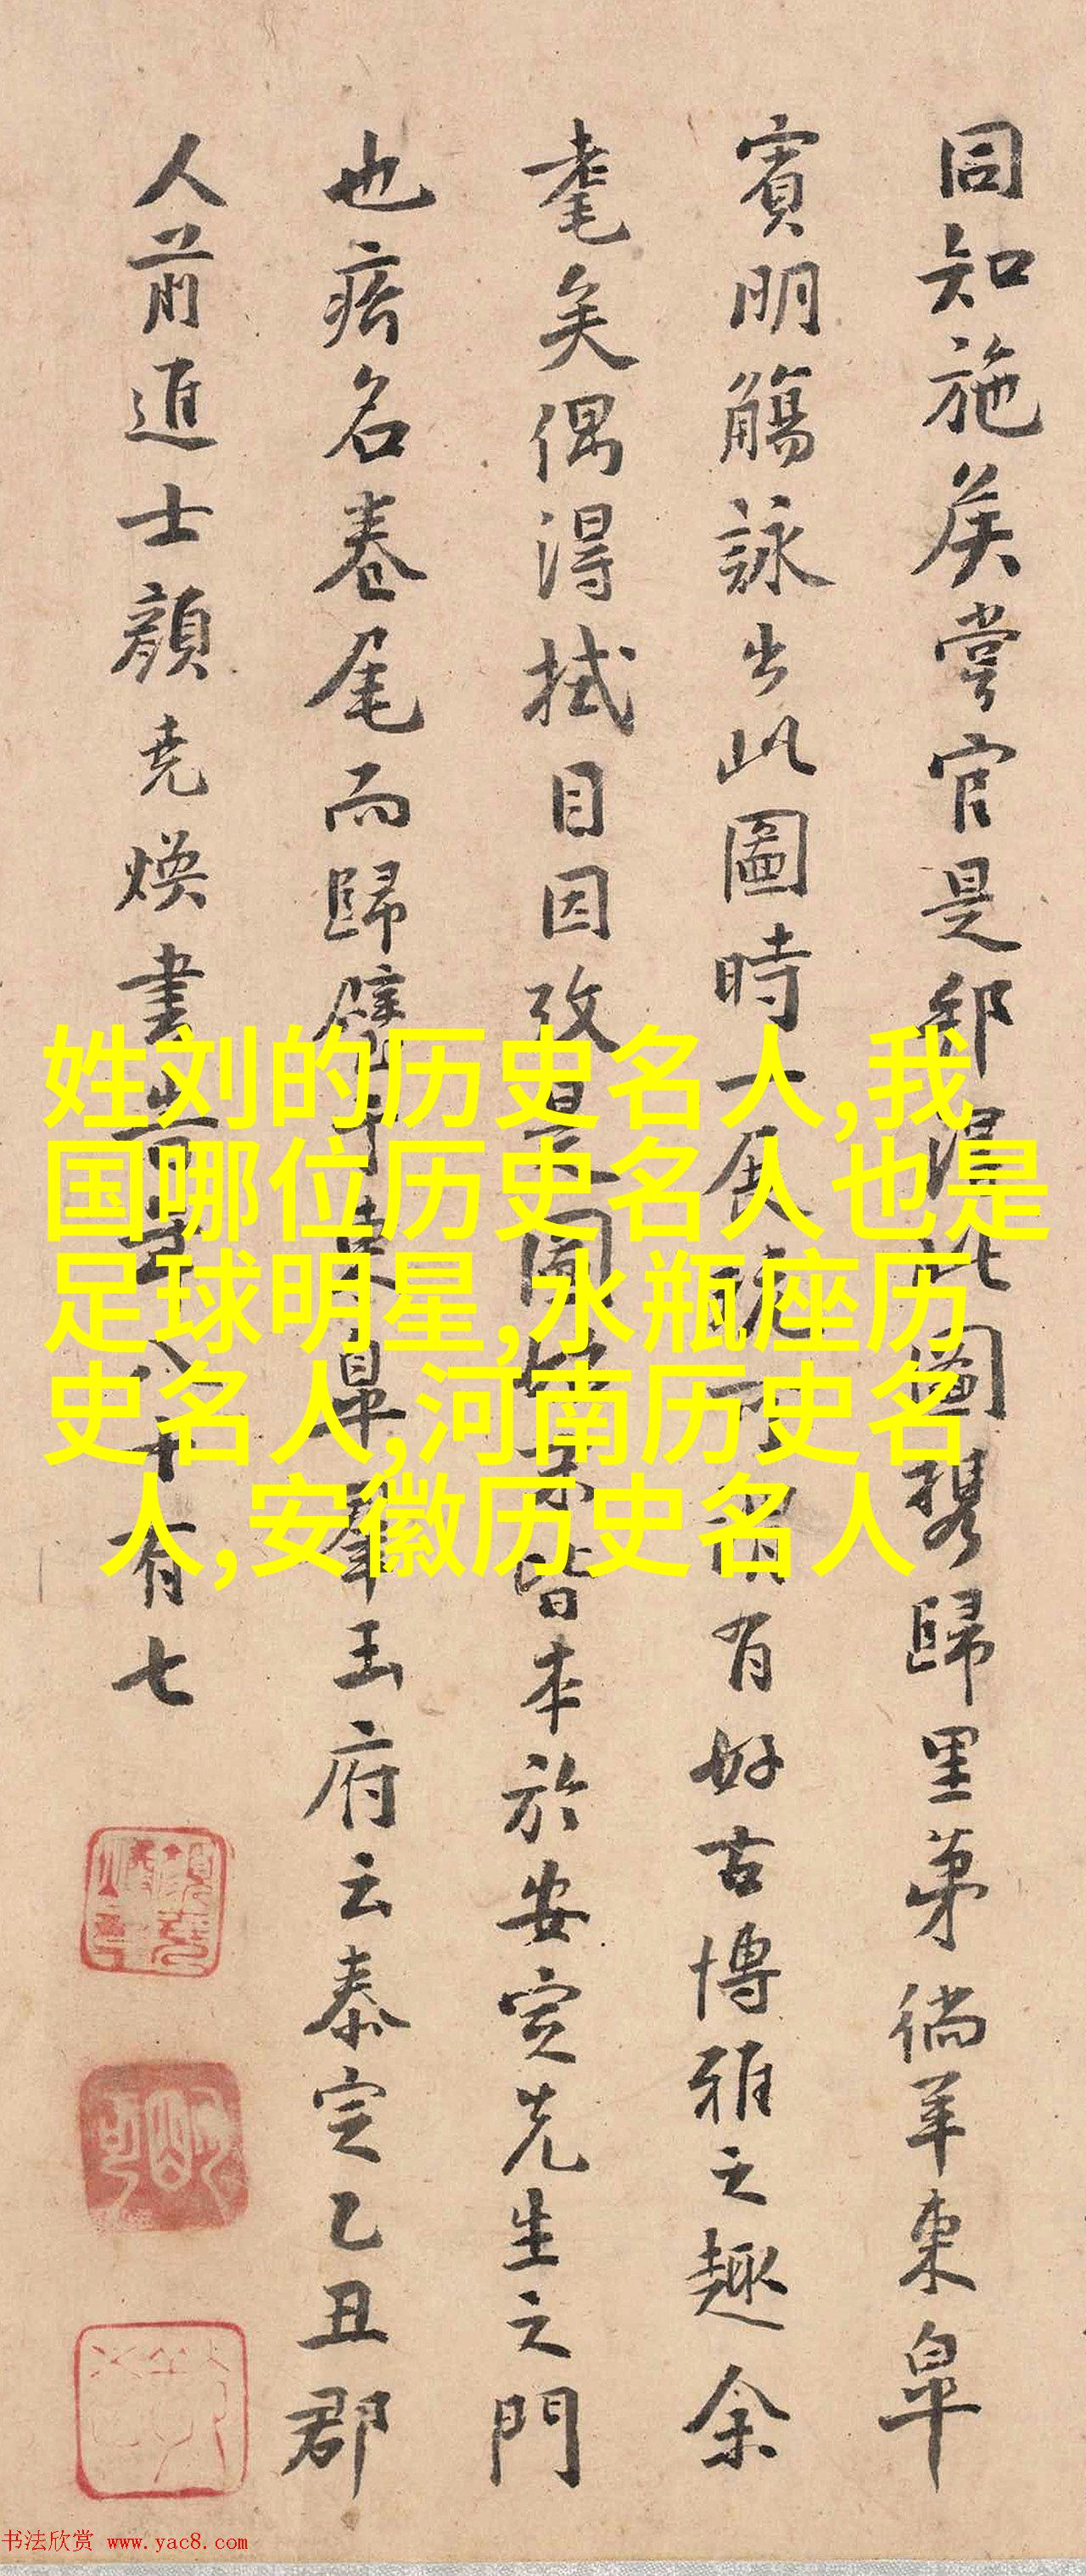 同知施侯嘗官是郡得此圖携歸里第徜羊東皐
賓明觴詠出此圖時一展玩可謂有好古博雅之趣余
耄矣偶得拭目因攷是圖皆本於安定先生之門
也瘩名卷尾而歸璧東皐羣玉府云泰定乙丑郡
人前進士顔堯煥書旹年八十有七
姓刘的历史名人,我
国哪位历史名人也是
足球明星,水瓶座历
史名人,河南历史名
人,安徽历史名人
书法欣赏 www.yac8.com